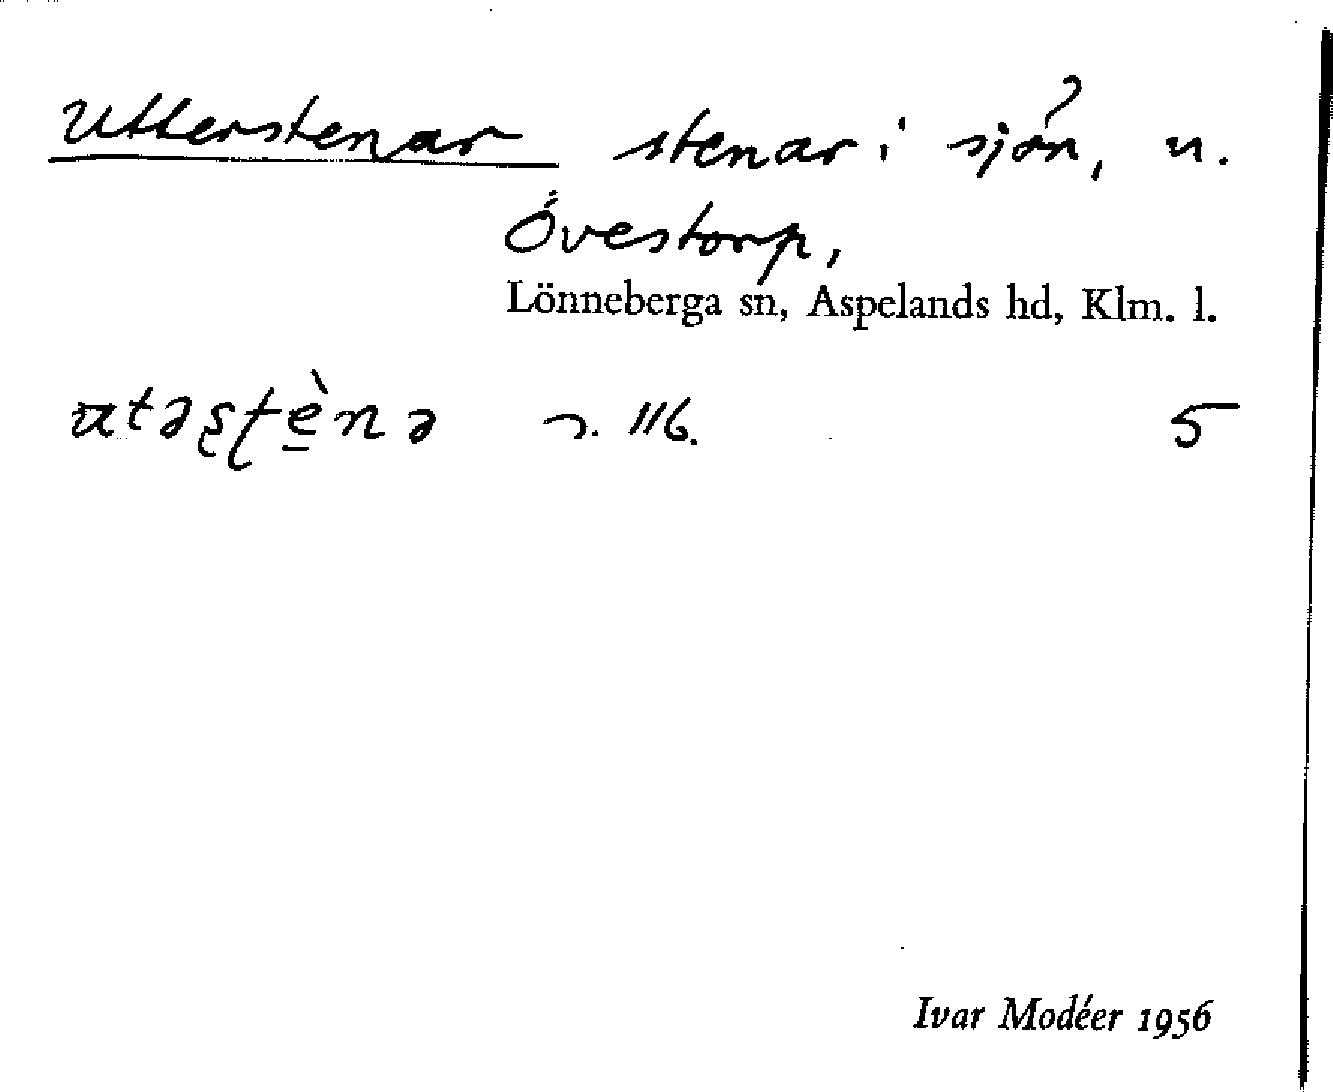 Utterstenar stenar i sjön, u.
Övestorp,
Lönneberga sn, Aspelands hd, Klm. l.
s. 116. 5
Ivar Modéer 1956